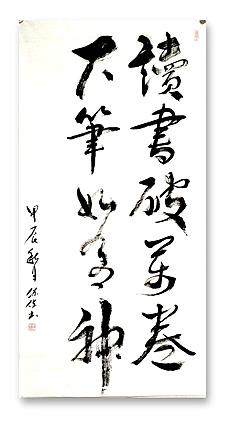 讀書破萬卷
下筆如有神
甲辰